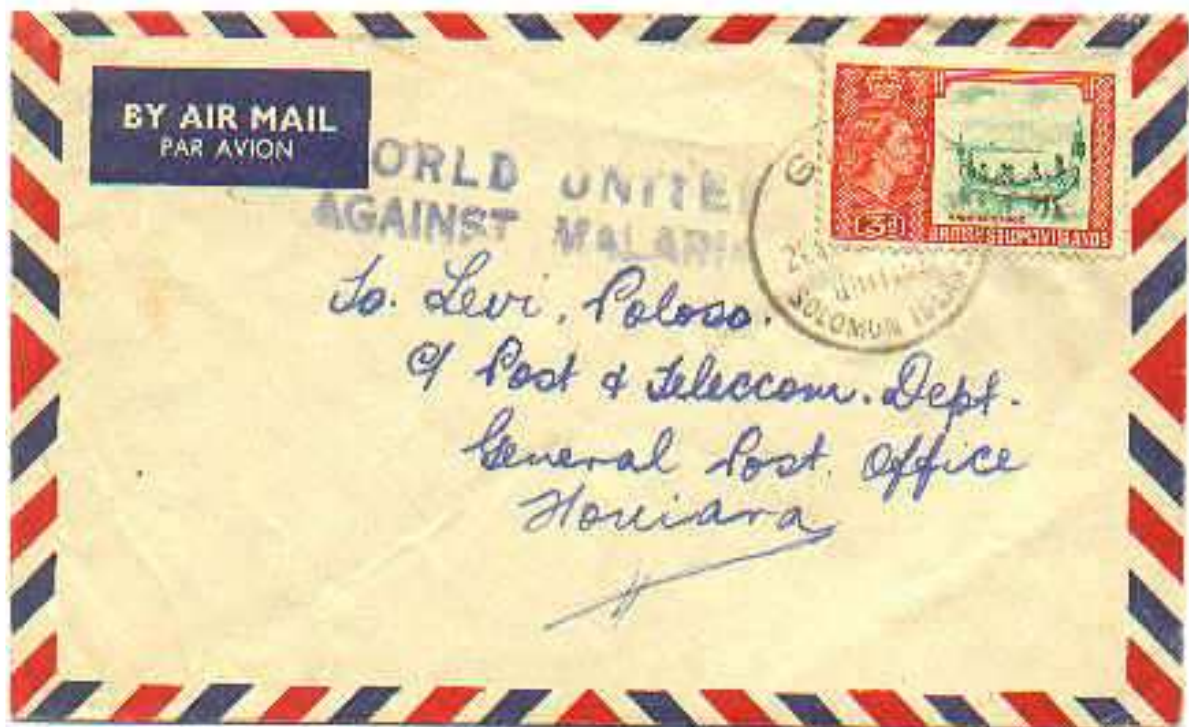 BY AIR MAIL
PAR AVION
ORLD UNITE
AGAINST MALARI
3d
BRITISH SOLOMON ISLANDS
SOLOMON
To. Levi. Poloso.
c/ Post & Teleccom. Dept.
General Post. Office
Honiara